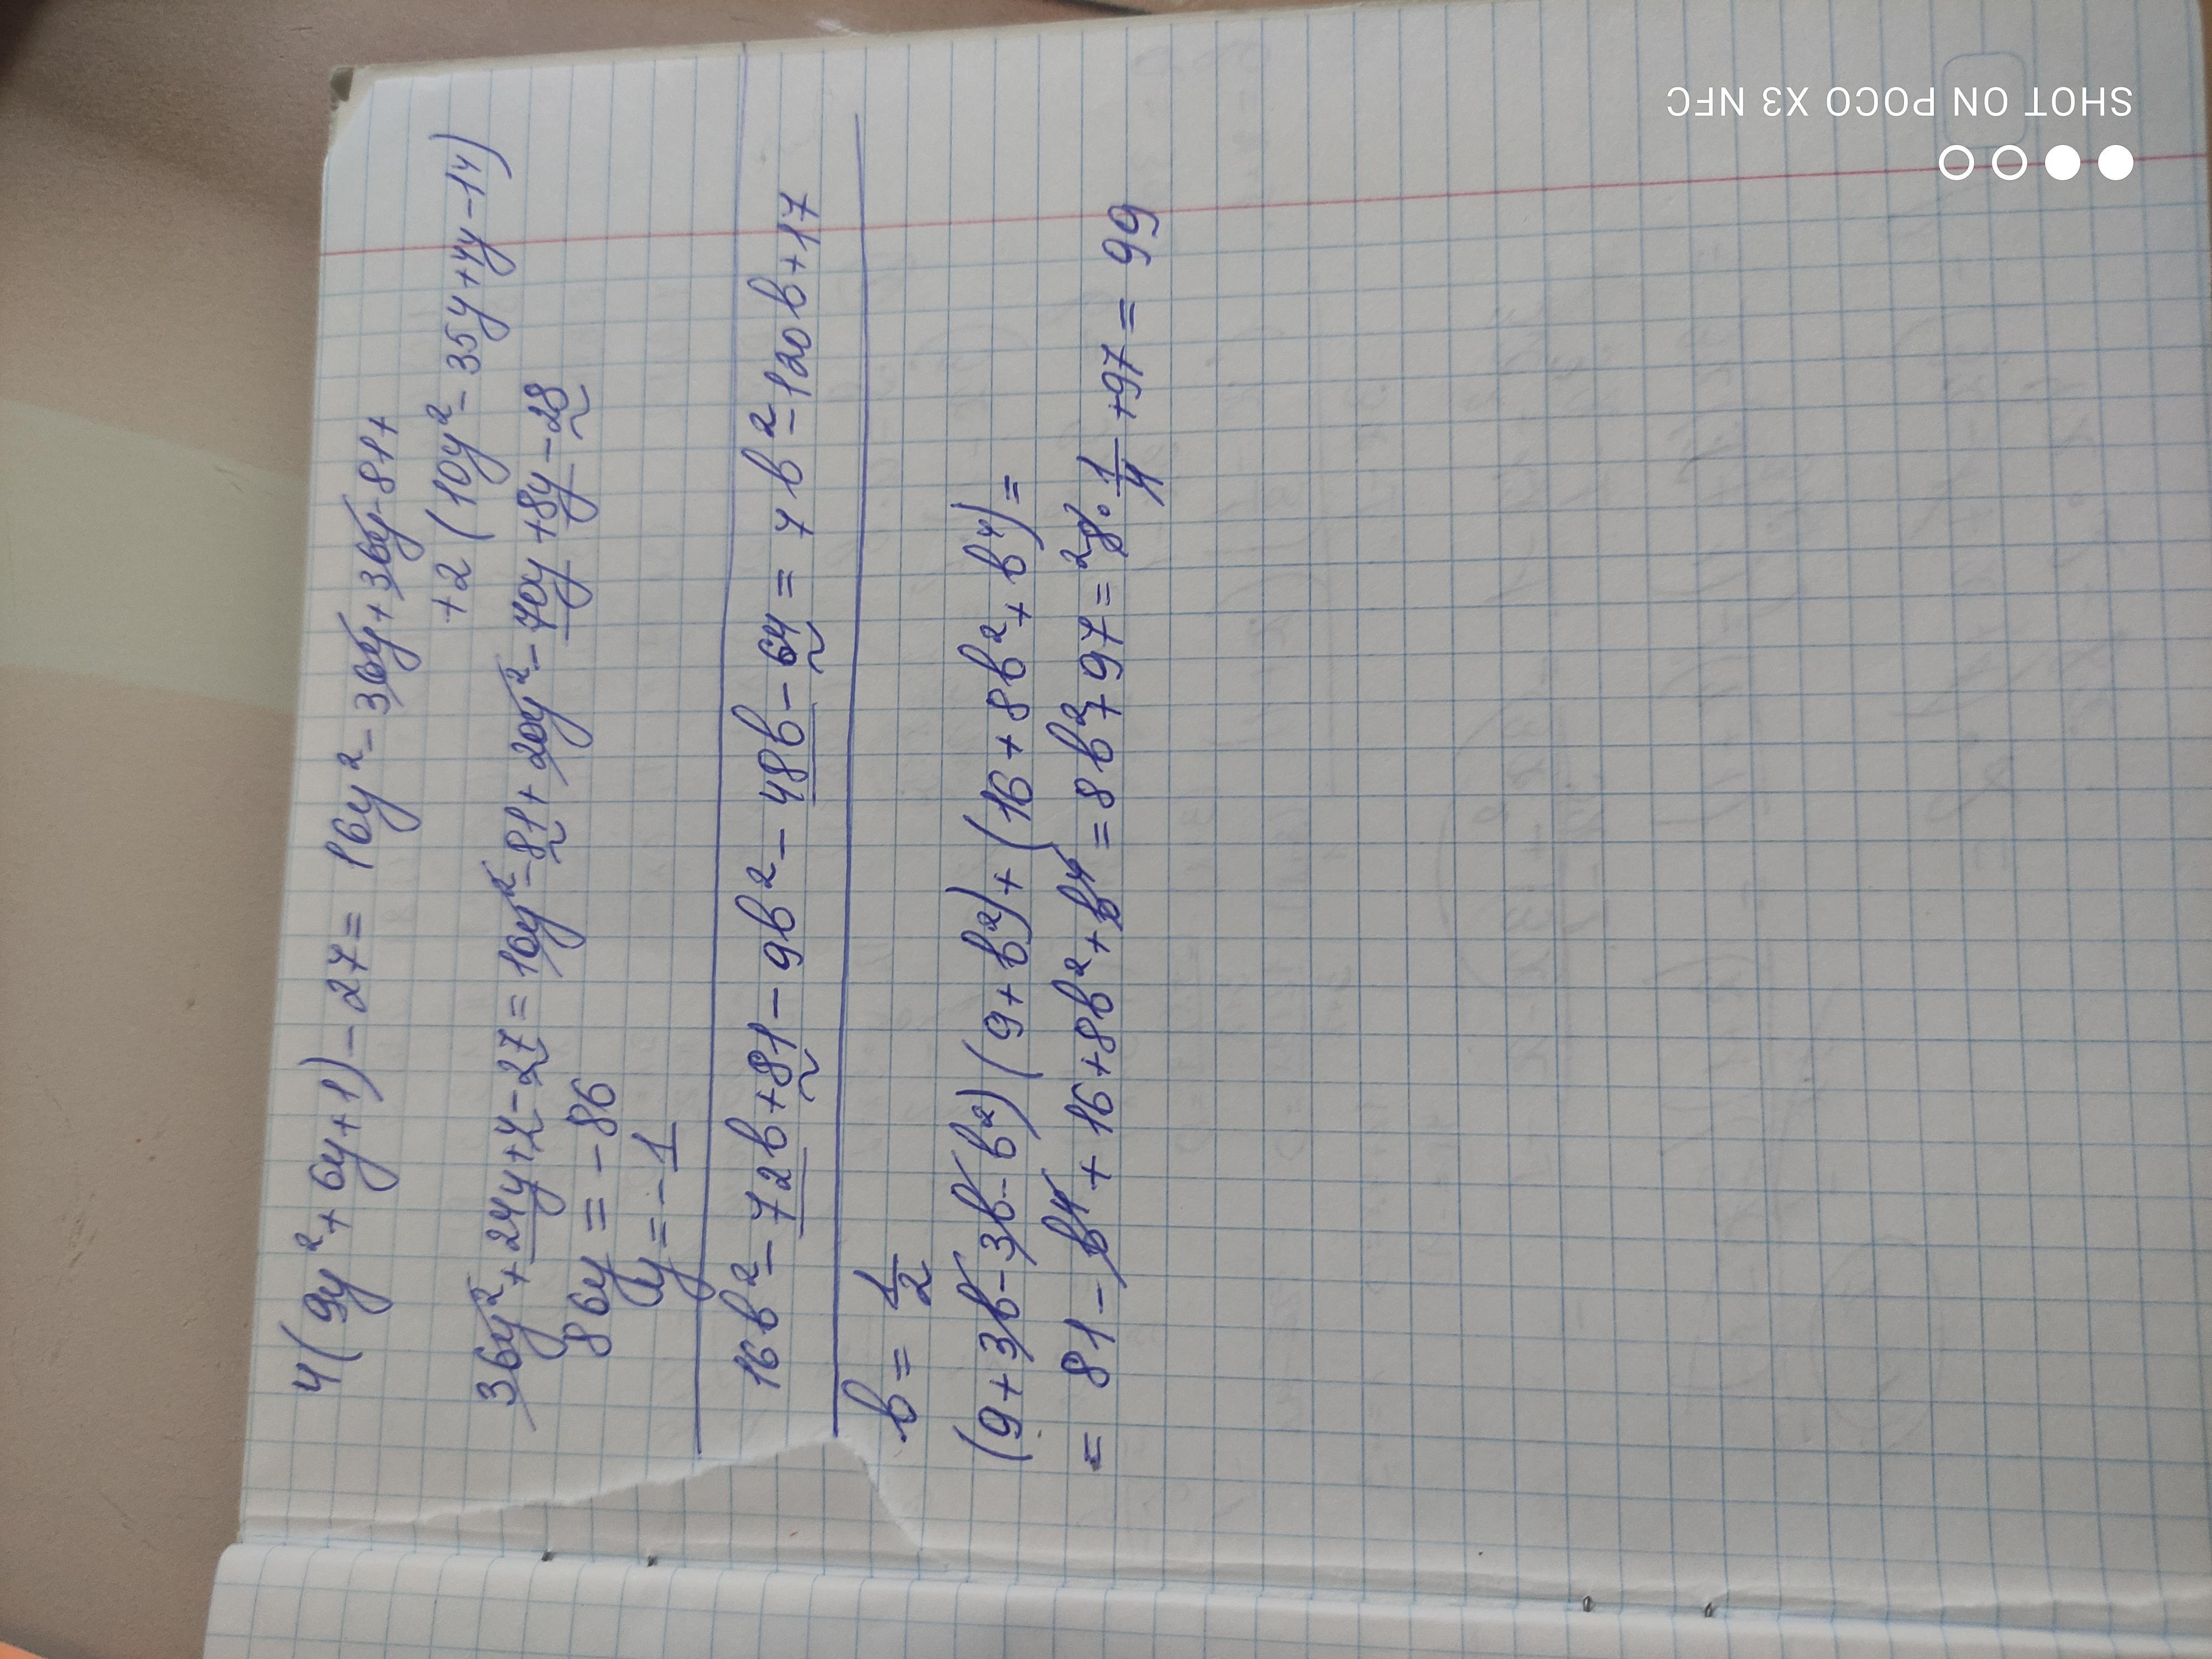 4(9y²+6y+1)-27=16y²-36y+36y-81+
+2(10y²-35y+4y-14)
36y²+24y+4-27=16y²-81+20y²-70y+8y-28
86y=-86
y=-1
16b²-72b+81-9b²-48b-64=7b²-120b+17
b=1/2
(9+3b-3b-b²)(9+b²)+(16+8b²+b⁴)=
=81-b⁴+16+8b²+b⁴=8b²+97=²8·1/4+97=99
SHOT ON POCO X3 NFC